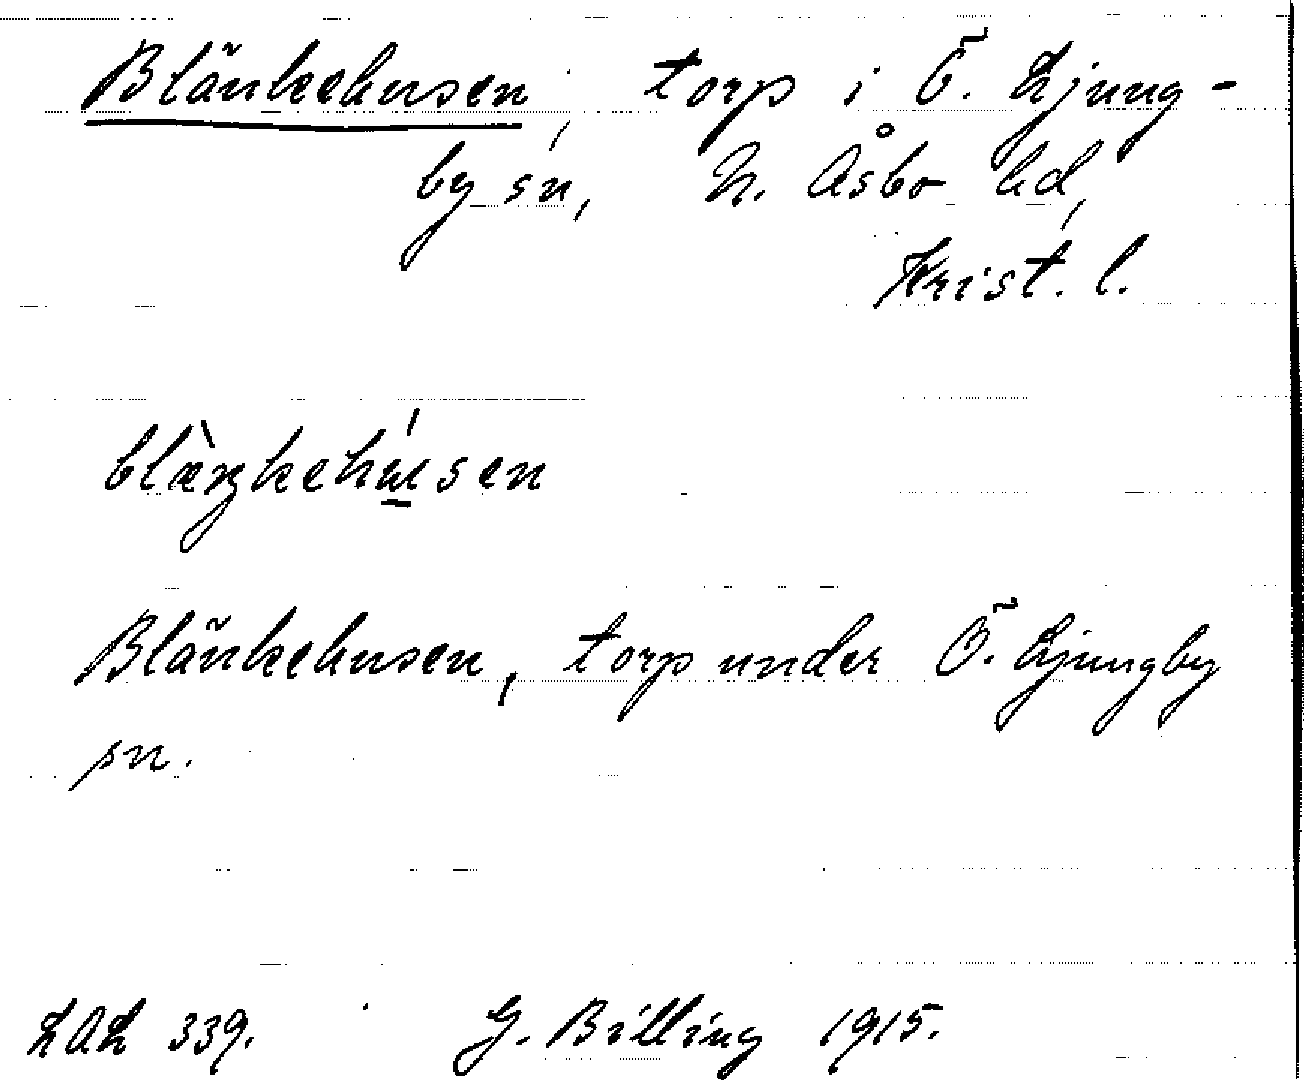 Blänkehusen, torp i Ö. Ljung-
by sn, N. Åsbo hd,
Krist. l.
blæ̀ŋkehú̱sen
Blänkehusen, torp under Ö. Ljungby
sn.
LAL 339. G. Billing 1915.